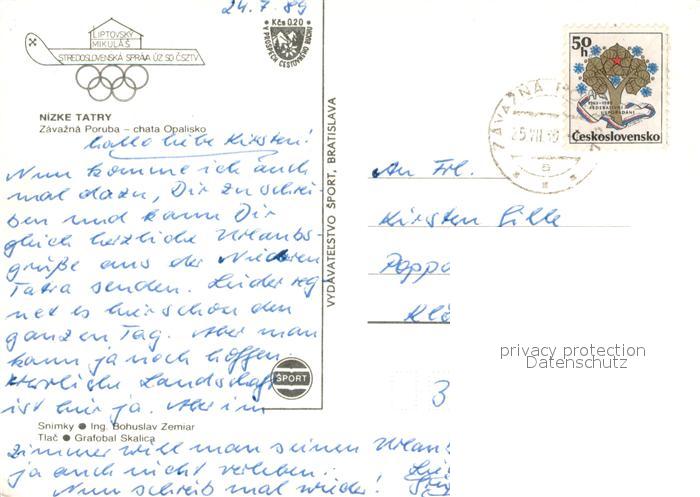 24.7.89
LIPTOVSKÝ
MIKULÁŠ
STREDOSLOVENSKÁ SPRÁVA ÚZ SO ČSZTV
Kčs 0.20
V PROSPECH CESTOVNÉHO RUCHU
NÍZKE TATRY
Závažná Poruba – chata Opalisko
Hallo liebe Kirsten!
Nun komme ich auch
mal dazu, Dir zu schrei-
ben und kann Dir
gleich herzliche Urlaubs-
grüße aus der Niederen
Tatra senden. Leider reg-
net es hier schon den
ganzen Tag. Aber man
kann ja noch hoffen.
Herrliche Landschaft
ist hier ja. Aber im
Zimmer will man seinen Urlaub
ja auch nicht verleben.
Nun schreib mal wieder!
Snímky ● Ing. Bohuslav Zemiar
Tlač ● Grafobal Skalica
ŠPORT
VYDAVATEĽSTVO ŠPORT, BRATISLAVA
50h
FEDERATÍVNÍ
USPOŘÁDÁNÍ
Československo
ZÁVAŽNÁ
25.VII.
An Frl.
Kirsten Gille
Poppo
Klö
3
privacy protection
Datenschutz